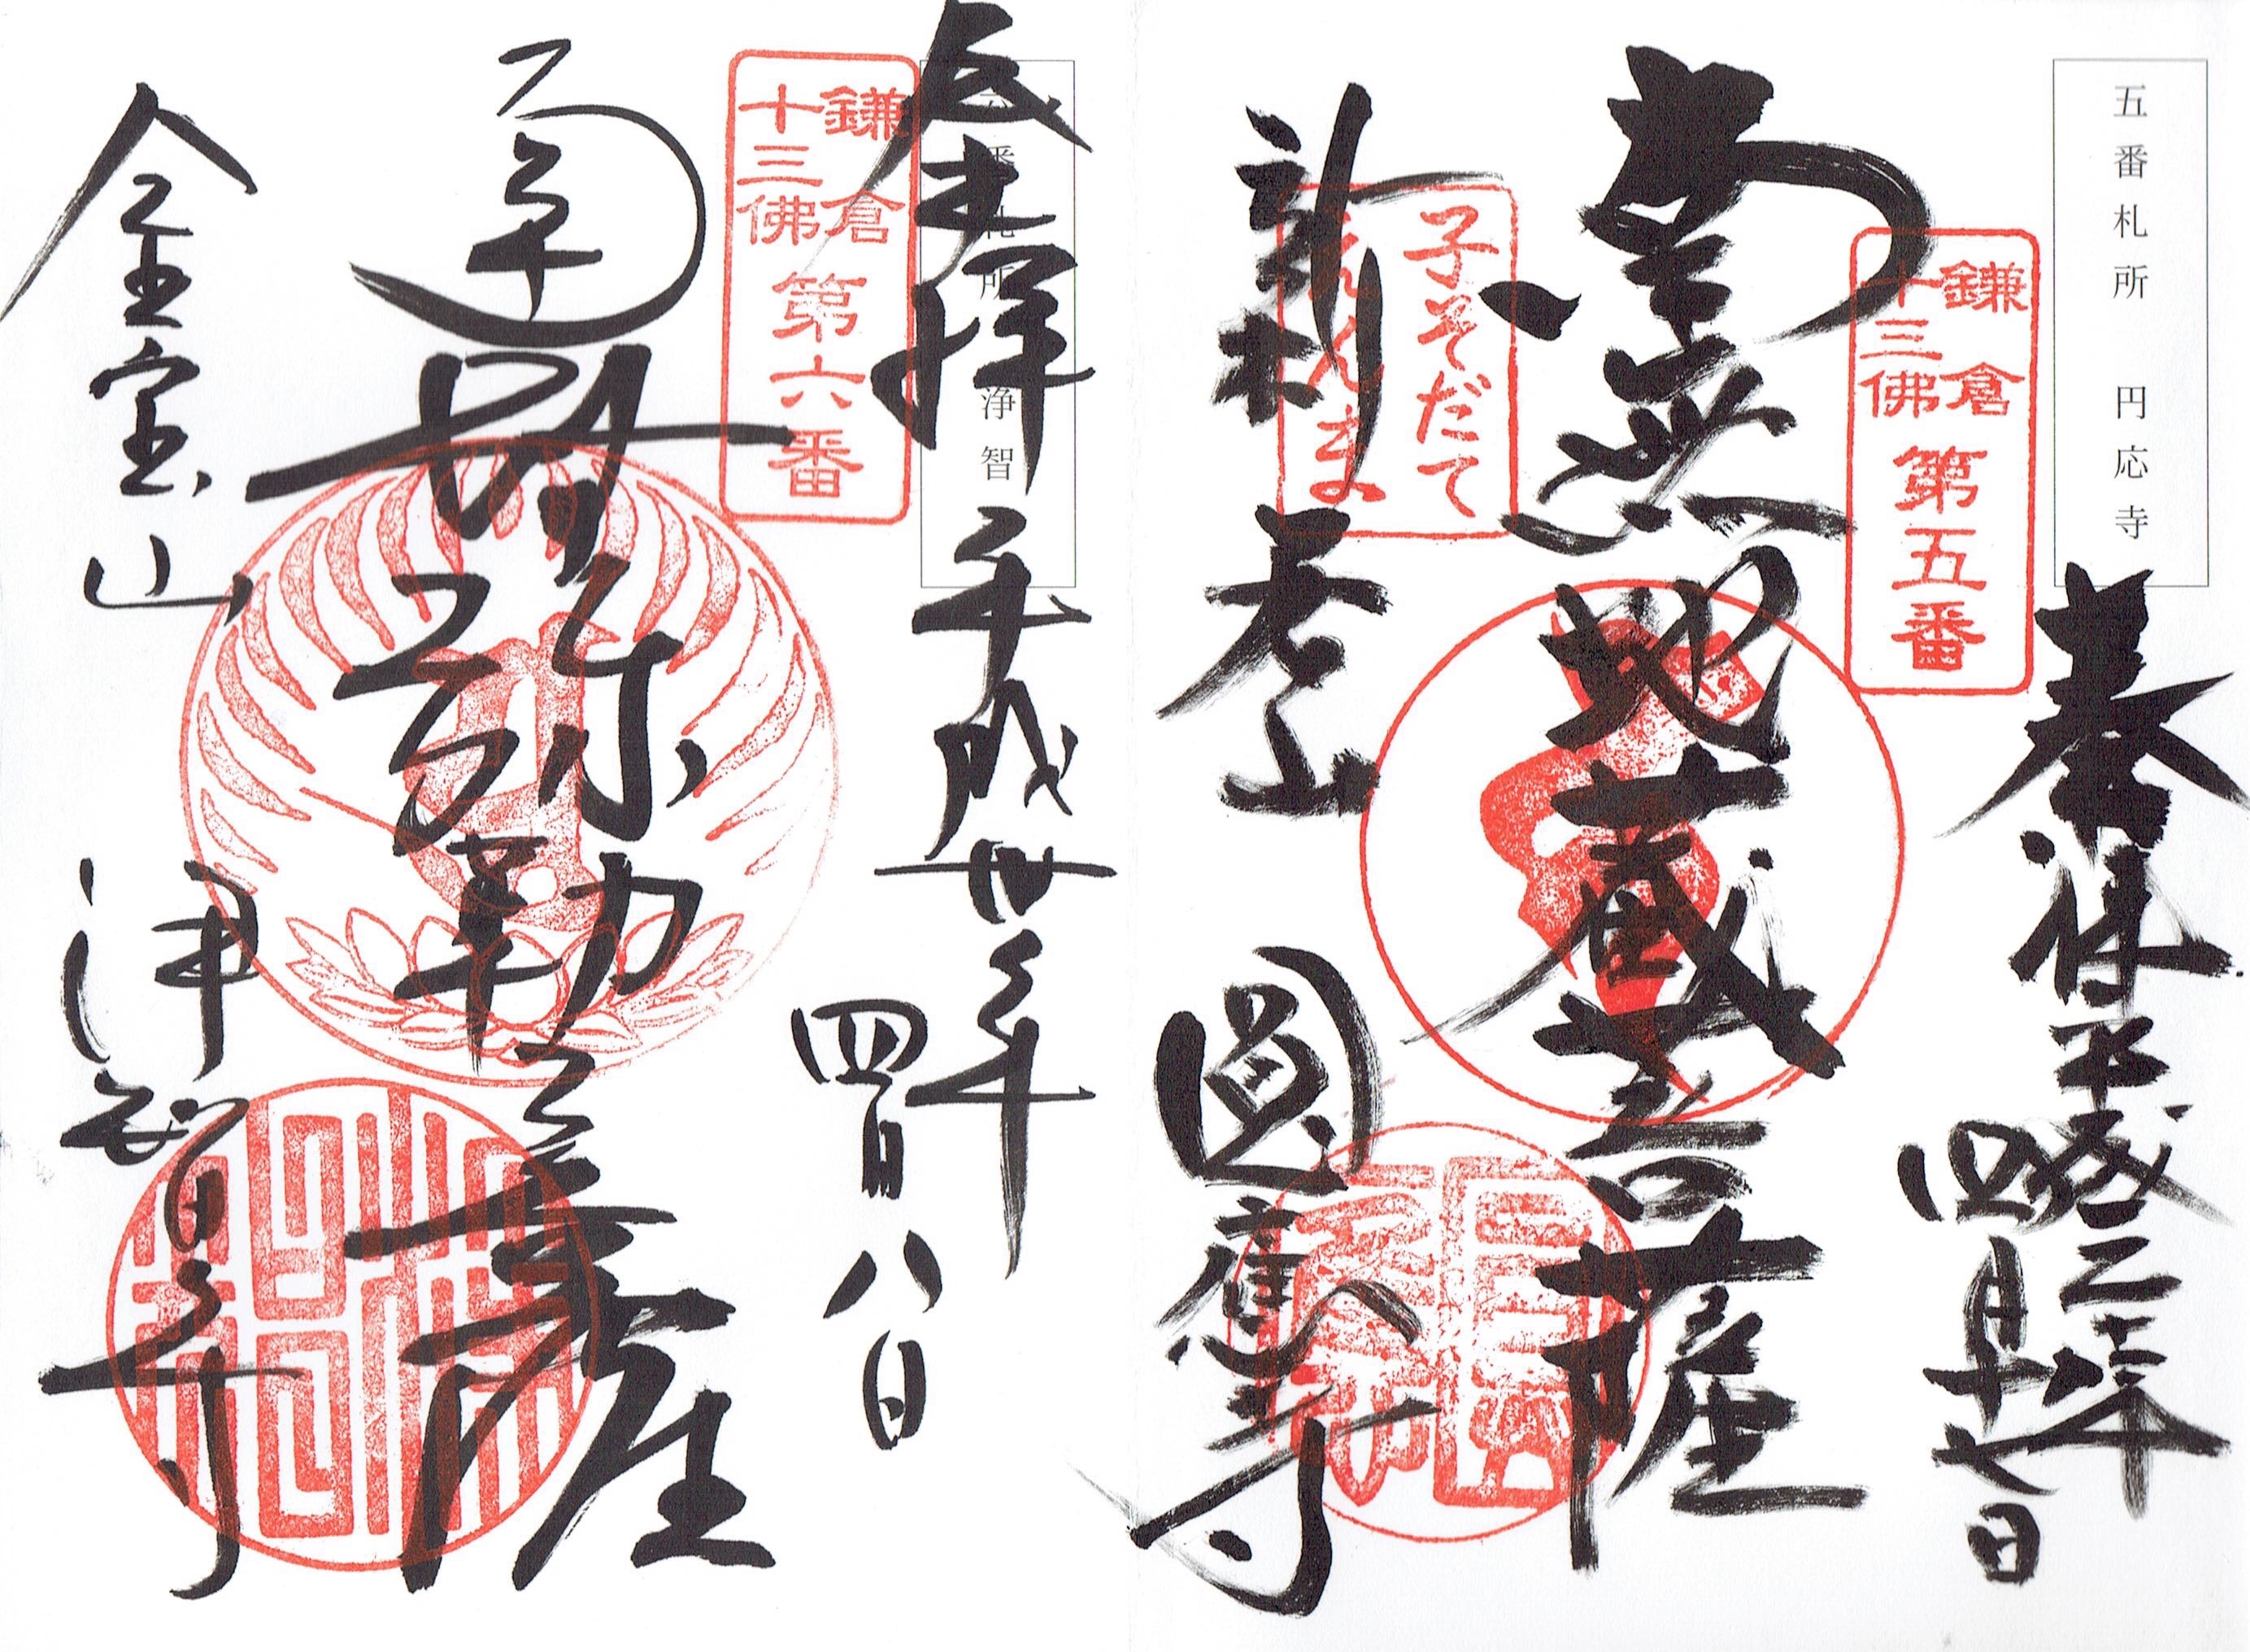 五番札所 円応寺
奉拝 平成三十年
四月十七日
鎌倉
十三佛
第五番
南無地蔵菩薩
子そだて
えんま
新村
圓應寺
番札所 浄智
奉拝 平成卅年
四月八日
鎌倉
十三佛
第六番
弥勒菩薩
金宝山
浄智寺